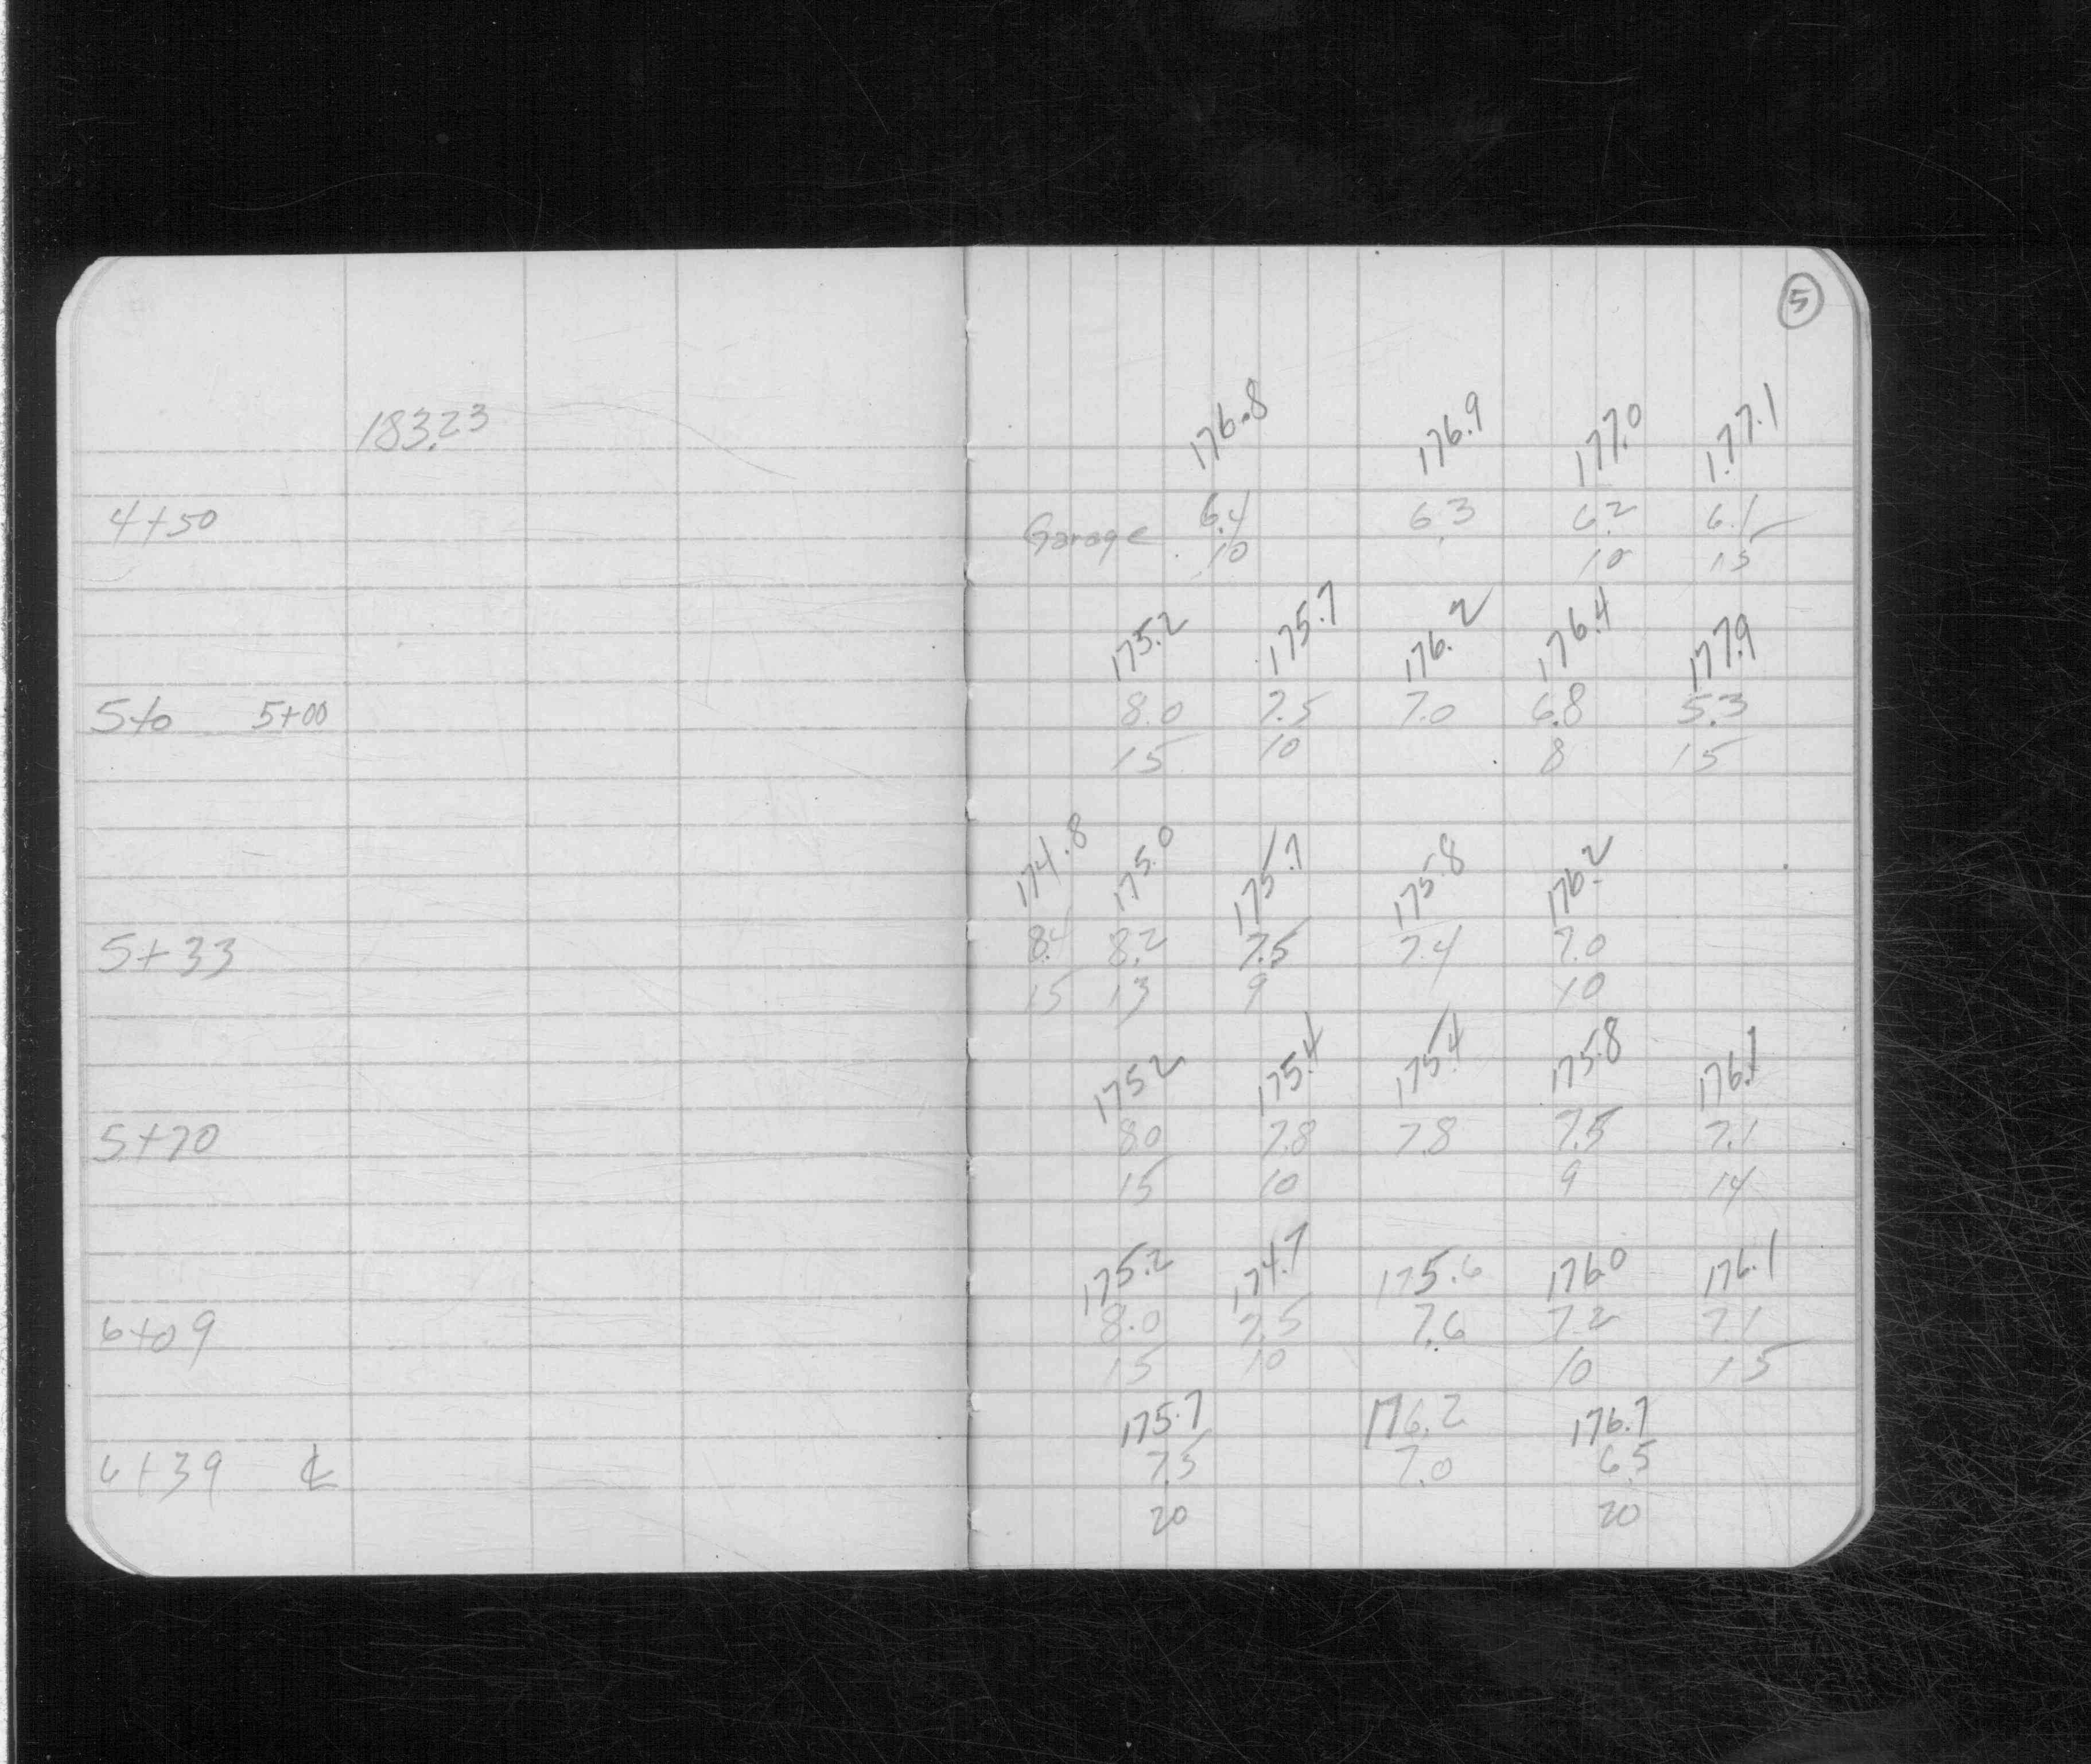 5
183.23
176.8 176.9 177.0 177.1
4+50 Garage 6.4 6.3 6.2 6.1
10 10 15
175.2 175.7 176.2 176.4 177.9
5+0 5+00 8.0 7.5 7.0 6.8 5.3
15 10 8 15
174.8 175.0 175.7 175.8 176.2
5+33 8.4 8.2 7.5 7.4 7.0
15 13 9 10
175.2 175.4 175.4 175.8 176.1
5+70 8.0 7.8 7.8 7.5 7.1
15 10 9 14
175.2 174.7 175.6 176.0 176.1
6+09 8.0 7.5 7.6 7.2 7.1
15 10 10 15
175.7 176.2 176.7
6+39 ℄ 7.5 7.0 6.5
20 20